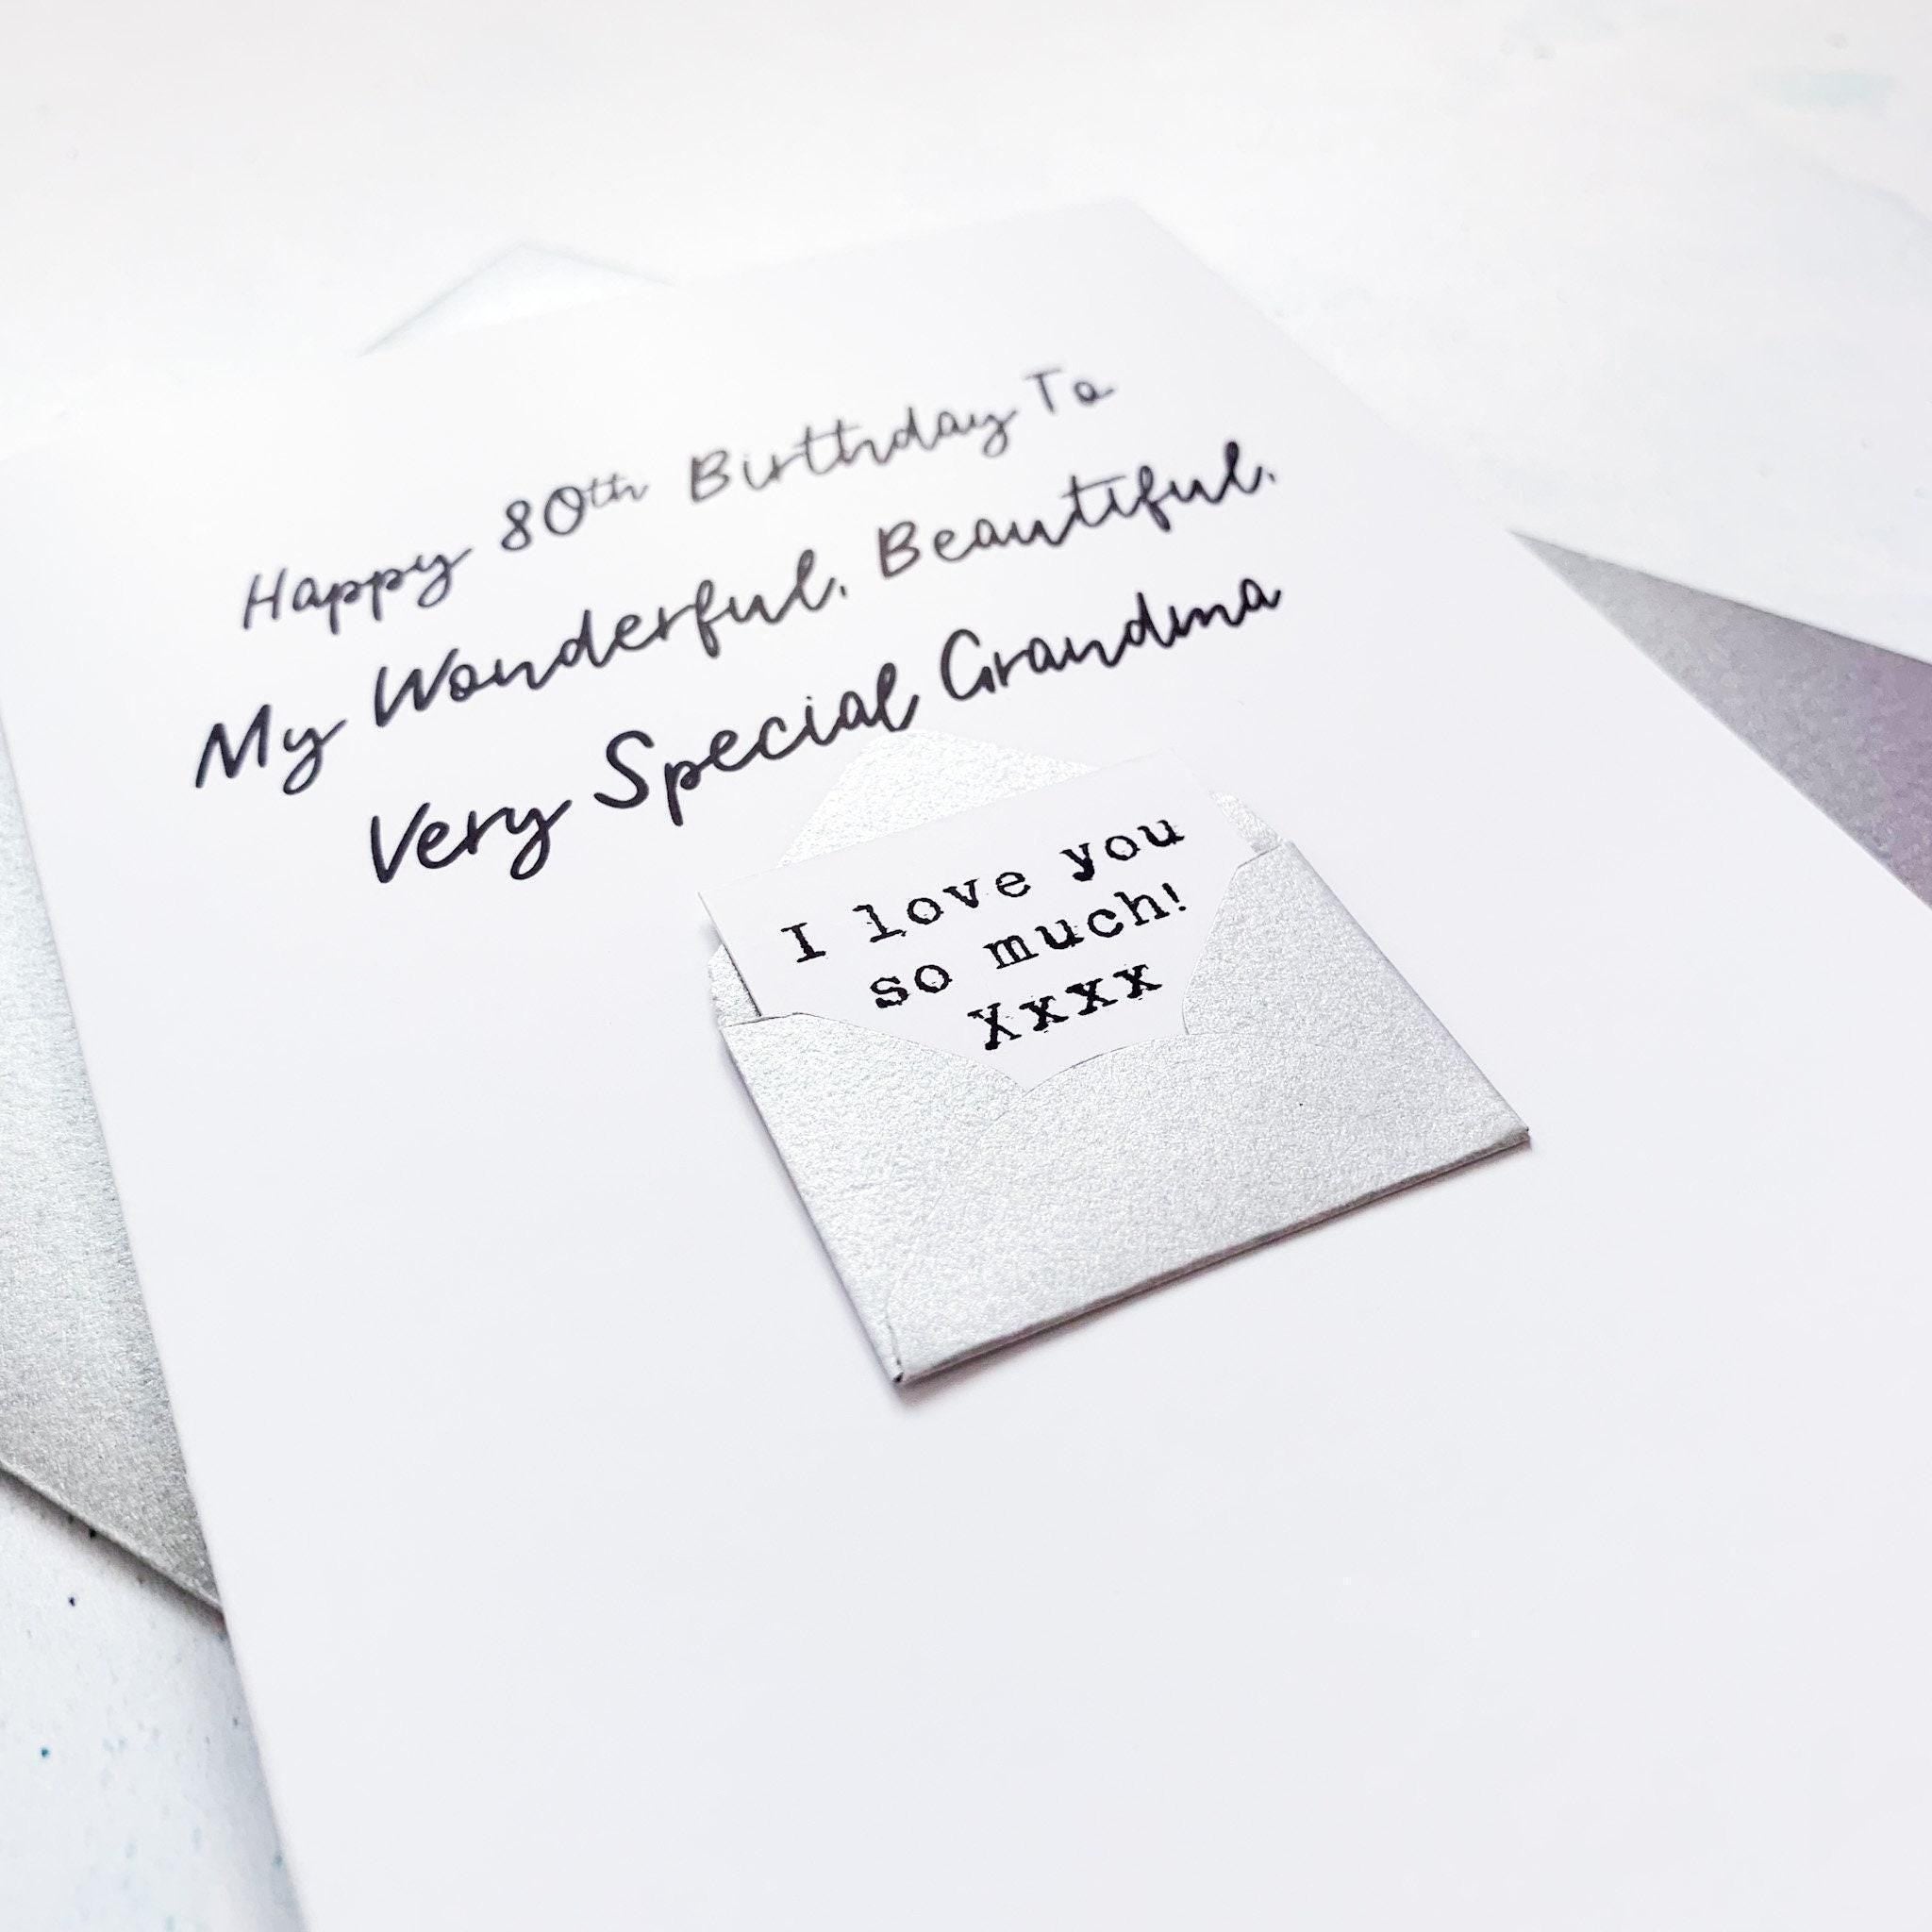 Happy 80th Birthday To
My Wonderful, Beautiful,
Very Special Grandma
I love you
so much!
Xxxx